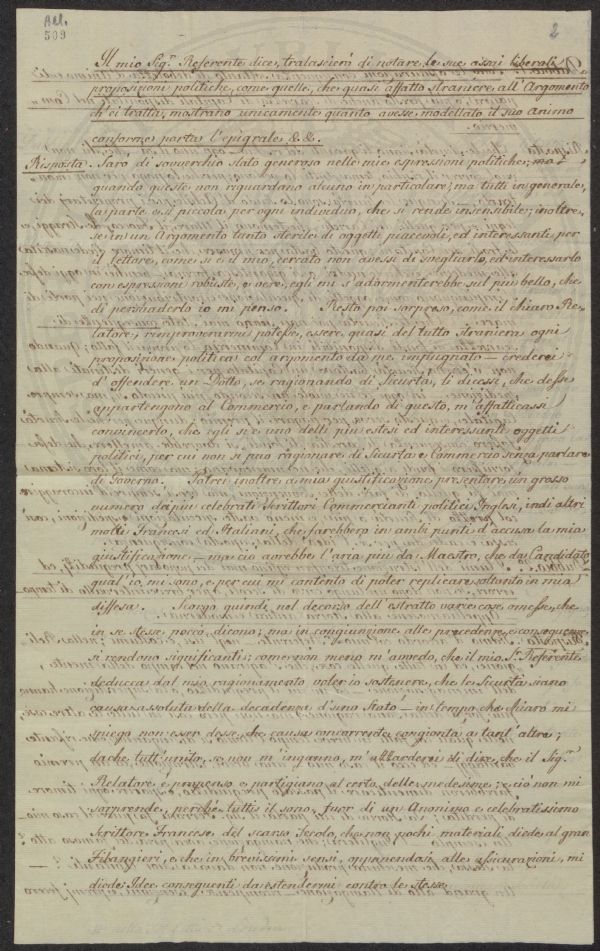 Act.
509
2
Il mio Sig.r Referente dice, tralascierò di notare le sue assai liberali
proposizioni politiche, come quelle, che quasi affatto straniere all'Argomento
ch'ei tratta, mostrano unicamente quanto avesse modellato il suo animo
conforme porta l'epigrafe &. &.
Risposta. Sarò di soverchio stato generoso nelle mie espressioni politiche; ma
quando queste non riguardano alcuno in particolare; ma tutti in generale,
la parte è sì piccola per ogni individuo, che si rende insensibile; inoltre,
se in un Argomento tanto sterile di oggetti piacevoli, ed interessanti per
il lettore, come si è il mio, cercato non avessi di svegliarlo, ed interessarlo
con espressioni robuste, e vere, egli mi s'adormenterebbe sul più bello, che
di persuaderlo io mi penso. Resto poi sorpreso, come il chiaro Re,
latore, rimproverarmi potesse, essere quasi del tutto straniera ogni
proposizione politica col argomento da me impugnato — crederei
d'offendere un Dotto, se ragionando di Sicurtà, li dicessi, che desse
appartengono al Commercio, e parlando di questo, m'affaticassi
convincerlo, che egli si è uno delli più estesi ed interessanti oggetti
politici, per cui non si può ragionare di Sicurtà e Commercio senza parlare
di Governo. Potrei inoltre a mia giustificazione presentare un grosso
numero de più celebrati Scrittori Commercianti politici Inglesi, indi altri
molti Francesi ed Italiani, che farebbero in ambi punti d'accusa la mia
giustificazione — ma ciò avrebbe l'aria più da Maestro, che da Candidato
qual'io mi sono, e per cui mi contento di poter replicare soltanto in mia
diffesa. Scorgo quindi, nel decorso dell'estratto varie cose omesse, che
in se stesse pocco dicono; ma in congiunzione alle precedenti, e conseguenti
si rendono significanti; come non meno m'avvedo, che il mio S.r Referente
deduca dal mio ragionamento voler io sostenere, che le Sicurtà siano
causa assoluta della decadenza d'uno Stato — in tempo che chiaro mi
spiego non esser desse, che causa concorrente congionta a tant'altre;
dachè tutt'unito, se non m'inganno, m'azzarderei di dire, che il Sig.r
Relatore è propenso e partigiano al certo delle medesime; e ciò non mi
sorprende, perchè tutti il sono, fuor di un Anonimo e celebratissimo
Scrittore Francese del scorso Secolo, che non pochi materiali diede al gran
Filangieri, e che in brevissimi sensi, opponendosi alle assicurazioni, mi
diede Idee conseguenti da estendermi contro le stesse.